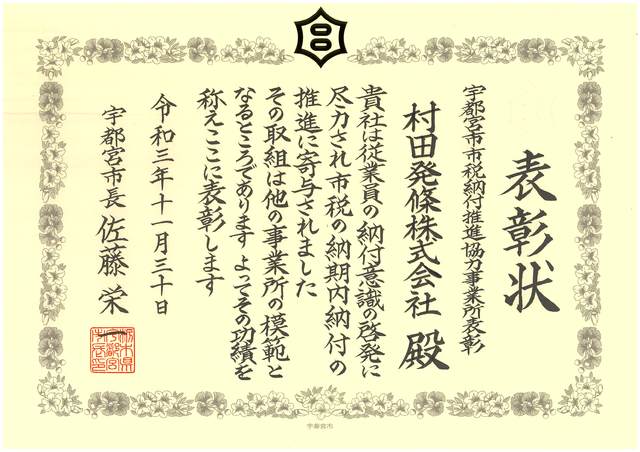 表彰状
宇都宮市市税納付推進協力事業所表彰
村田発條株式会社 殿
貴社は従業員の納付意識の啓発に
尽力され市税の納期内納付の
推進に寄与されました
その取組は他の事業所の模範と
なるところであります よってその功績を
称えここに表彰します
令和三年十一月三十日
宇都宮市長 佐藤 栄一
宇都宮市